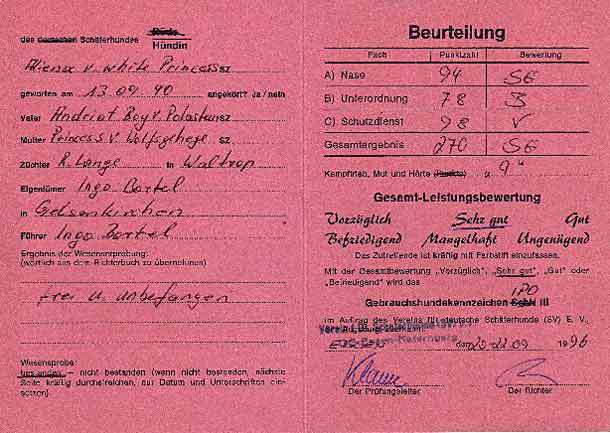 Rüde
des deutschen Schäferhundes
Hündin
v. white Princess SZ
geworfen am 13.09.90 angekört? Ja / nein
Vater Andriot Boy v. SZ
Mutter Princess v Wolfsgehege SZ
Züchter R. Lange in Waltrop
Eigentümer Ingo Bartel
in Gelsenkirchen
Führer Ingo Bartel
Ergebnis der Wesenserprobung:
(wörtlich aus dem Richterbuch zu übernehmen)
frei u. unbefangen
Wesensprobe:
bestanden – nicht bestanden (wenn nicht bestanden, nächste
Seite kräftig durchstreichen, nur Datum und Unterschriften ein-
setzen).
Beurteilung
Fach Punktzahl Bewertung
A) Nase 94 SG
B) Unterordnung 78 B
C) Schutzdienst 98 V
Gesamtergebnis 270 SG
Kampftrieb, Mut und Härte (Punkte) "a"
Gesamt-Leistungsbewertung
Vorzüglich Sehr gut Gut
Befriedigend Mangelhaft Ungenügend
Das Zutreffende ist kräftig mit Farbstift einzufassen.
Mit der Gesamtbewertung „Vorzüglich", „Sehr gut", „Gut" oder
„Befriedigend" wird das
IPO
Gebrauchshundekennzeichen SchH III
im Auftrag des Vereins für deutsche Schäferhunde (SV) E. V.,
Essen-Katernberg den 20-21.09 1996
Der Prüfungsleiter Der Richter